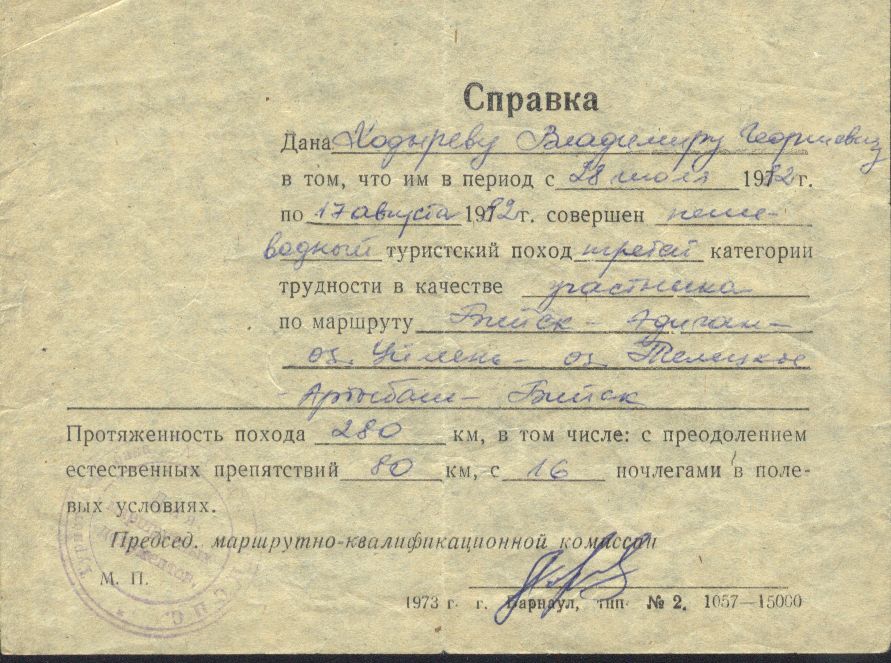 Справка
Дана Ходыреву Владимиру Георгиевичу
в том, что им в период с 28 июля 1982г.
по 17 августа 1982г. совершен пеше-
водный туристский поход третей категории
трудности в качестве участника
по маршруту Бийск - Адыган -
оз. Уймень - оз. Телецкое
- Артыбаш - Бийск
Протяженность похода 280 км, в том числе: с преодолением
естественных препятствий 80 км, с 16 ночлегами в поле-
вых условиях.
Председ. маршрутно-квалификационной комиссии
М. П.
1973 г. г. Барнаул, тип. № 2. 1057—15000